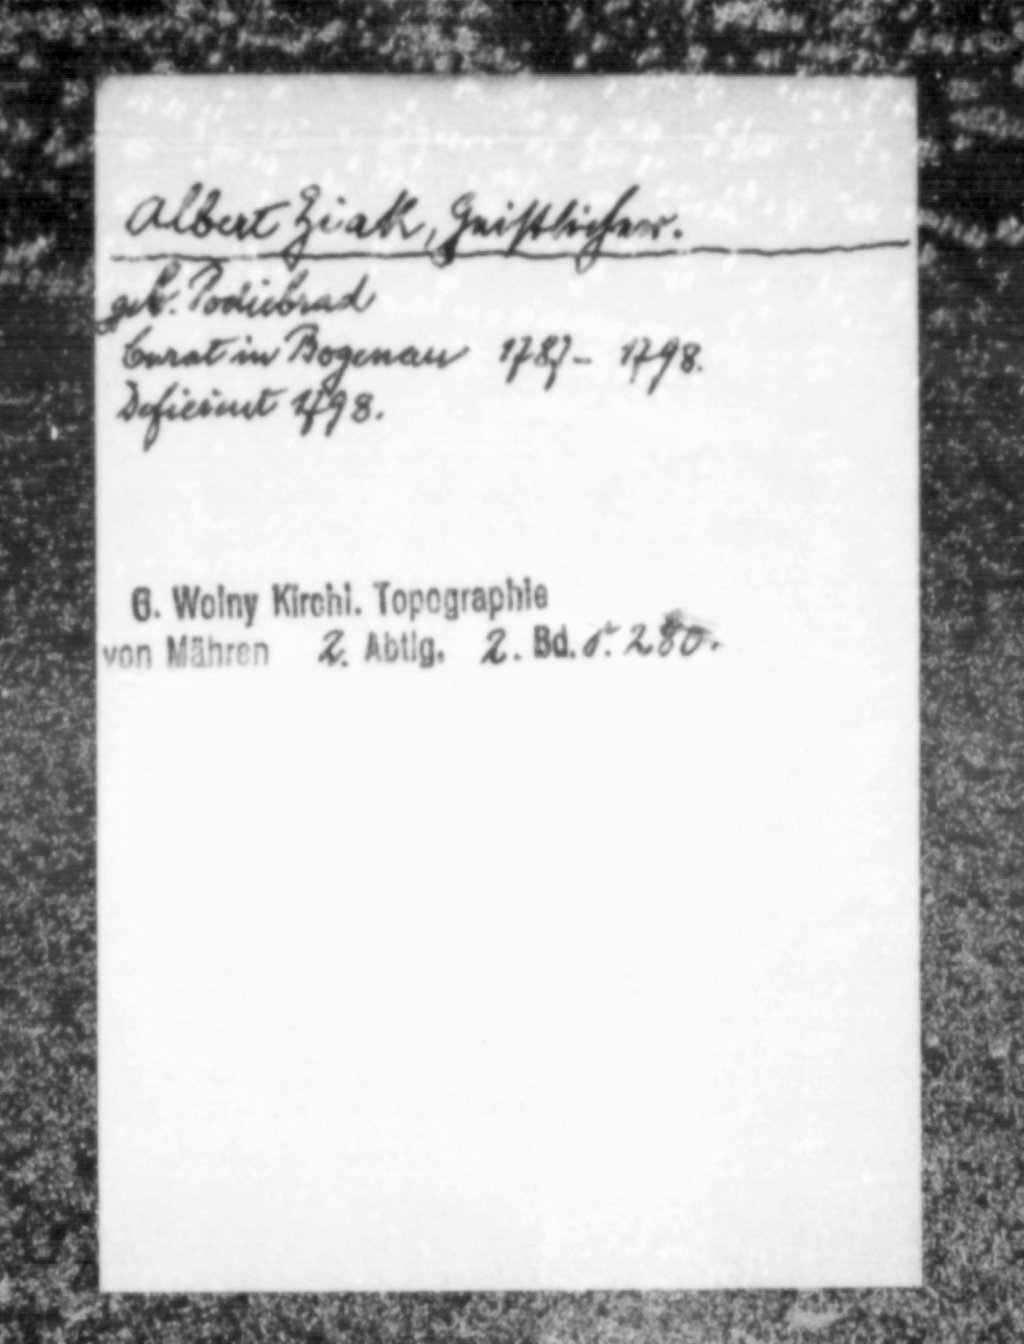 Albert Ziak, Geistlicher.
geb. Podiebrad
Curat in Bogenau 1787 - 1798.
Deficient 1798.
G. Wolny Kirchl. Topographie
von Mähren 2. Abtlg. 2. Bd. S. 280.